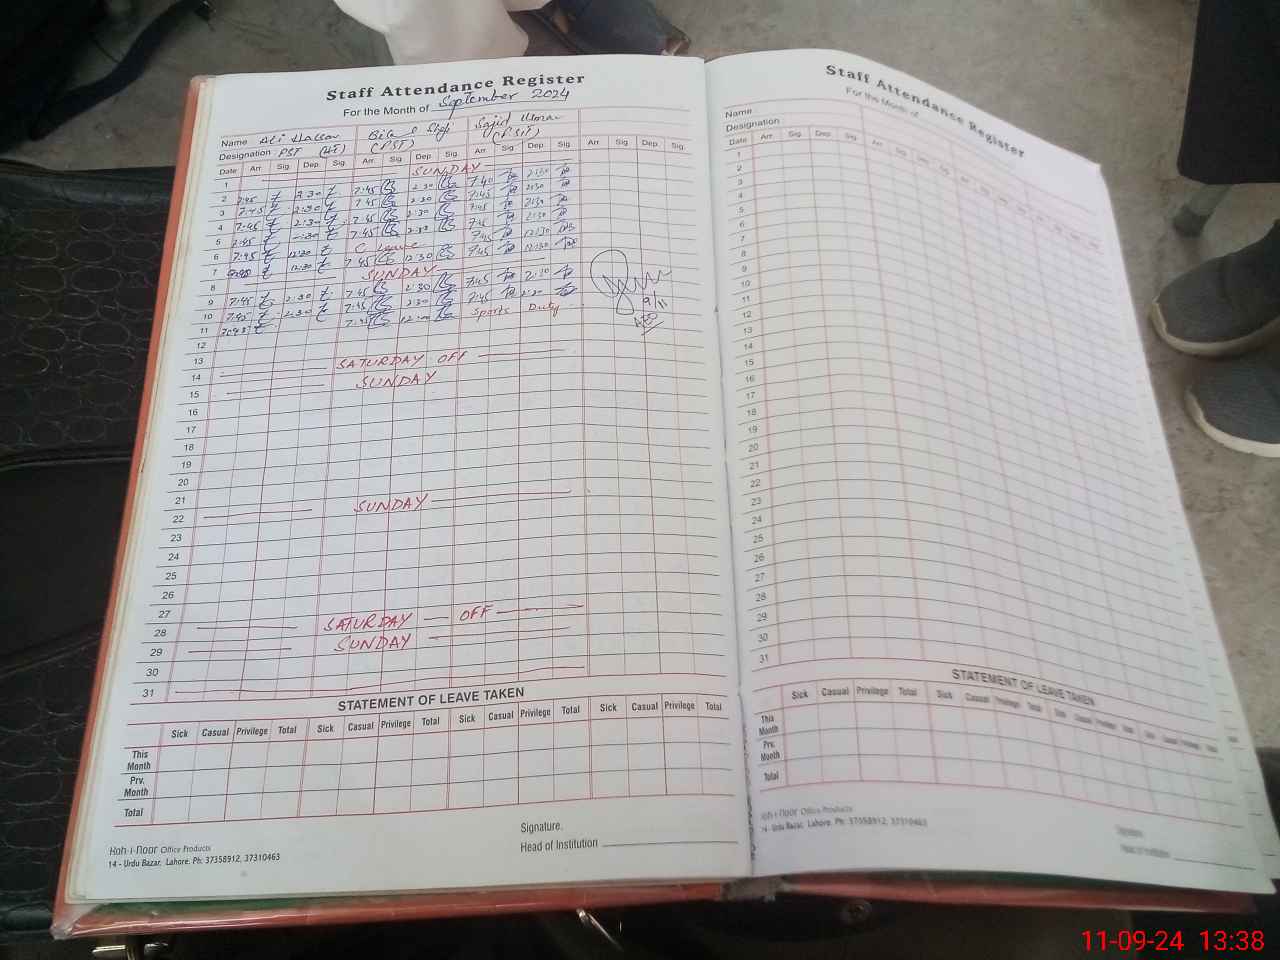 Staff Attendance Register
For the Month of September 2024
Name Ali Hassan Bilal Sajid Umar
Designation PST (PST) (PST)
Date Arr. Sig. Dep. Sig. Arr. Sig. Dep. Sig. Arr. Sig. Dep. Sig. Arr. Sig. Dep. Sig.
1 SUNDAY
2 7:45 2:30 7:45 2:30 7:40 2:30
3 7:45 2:30 7:45 2:30 7:45 2:30
4 7:45 2:30 7:45 2:30 7:45 2:30
5 7:45 2:30 7:45 2:30 7:45 2:30
6 7:45 12:30 C Leave 7:45 12:30
7 12:30 7:45 12:30 7:45 12:30
8 SUNDAY
9 7:45 2:30 7:45 2:30 7:45 2:30
10 7:45 2:30 7:45 2:30 7:45 2:30
11 7:45 Sports Duty
12
13
14 SATURDAY OFF
15 SUNDAY
16
17
18
19
20
21
22 SUNDAY
23
24
25
26
27
28 SATURDAY OFF
29 SUNDAY
30
31
9/11
AEO
STATEMENT OF LEAVE TAKEN
Sick Casual Privilege Total Sick Casual Privilege Total Sick Casual Privilege Total Sick Casual Privilege Total
This Month
Prv. Month
Total
Signature.
Head of Institution
Koh-i-Noor Office Products
14 - Urdu Bazar, Lahore. Ph: 37358912, 37310463
Staff Attendance Register
For the Month of
Name
Designation
Date Arr. Sig. Dep. Sig. Arr. Sig. Dep. Sig.
1
2
3
4
5
6
7
8
9
10
11
12
13
14
15
16
17
18
19
20
21
22
23
24
25
26
27
28
29
30
31
STATEMENT OF LEAVE TAKEN
Sick Casual Privilege Total Sick Casual Privilege Total Sick Casual Privilege Total
This Month
Prv. Month
Total
Koh-i-Noor Office Products
14 - Urdu Bazar, Lahore. Ph: 37358912, 37310463
Signature
Head of Institution
11-09-24 13:38